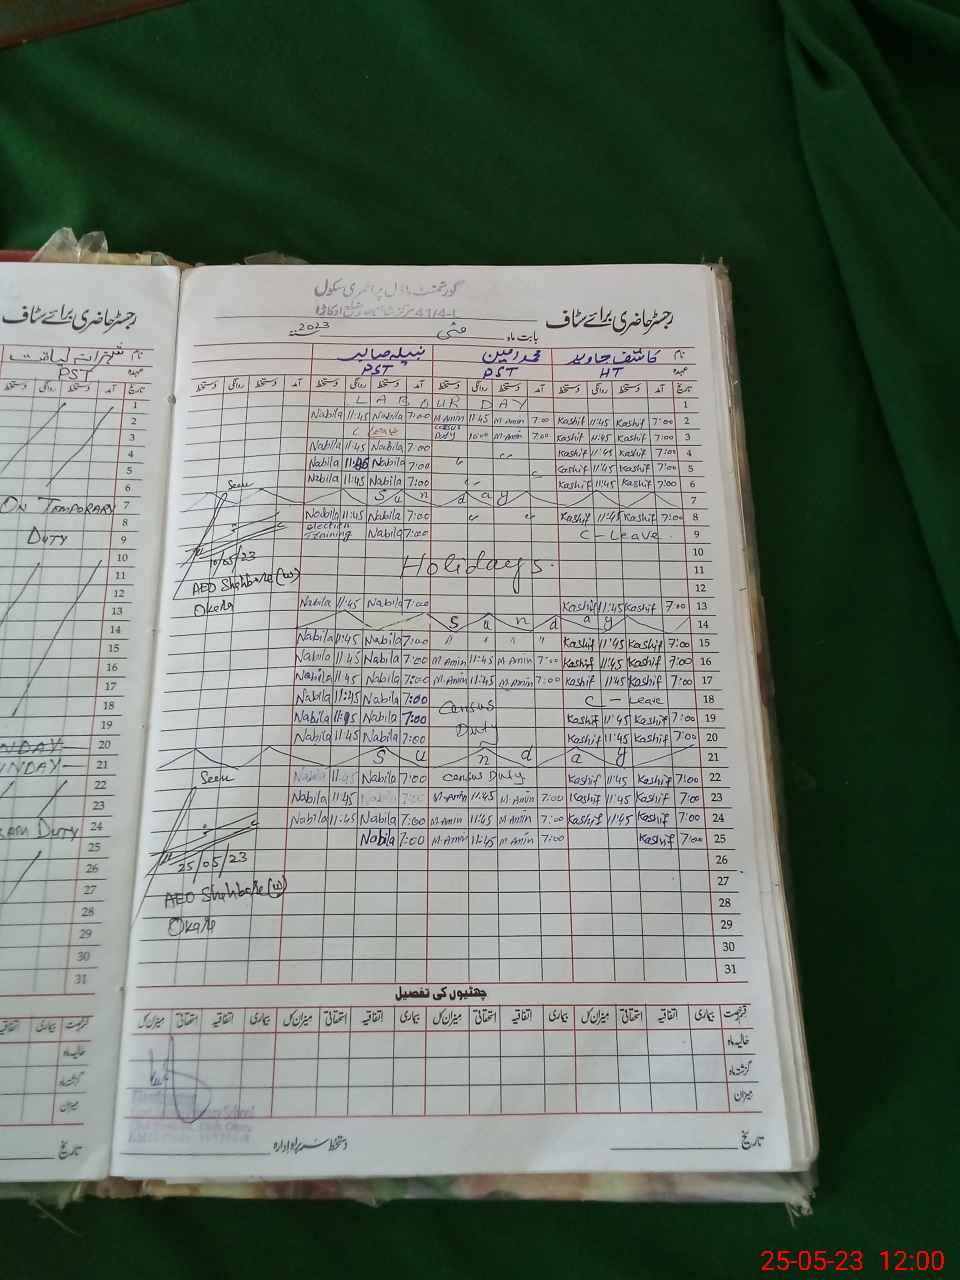 رجسٹر حاضری برائے سٹاف
نام شہزانہ لیاقت
عہدہ PST
تاریخ آمد دستخط روانگی دستخط
1
2
3
4
5
6
7 ON TEMPORARY
8
9 DUTY
10
11
12
13
14
15
16
17
18
19
20 NDAY
21 UNDAY
22
23
24 DUTY
25
26
27
28
29
30
31
قسم رخصت بیماری اتفاقیہ
حالیہ ماہ
گزشتہ ماہ
میزان
تاریخ
گورنمنٹ ماڈل پرائمری سکول
41/4-L اوکاڑا
رجسٹر حاضری برائے سٹاف
بابت ماہ مئی 2023
نام کاشف جاوید محمد امین نبیلہ صابر
عہدہ HT PST PST
تاریخ آمد دستخط روانگی دستخط آمد دستخط روانگی دستخط آمد دستخط روانگی دستخط آمد دستخط روانگی دستخط
LABOUR DAY 1
Nabila 11:45 Nabila 7:00 M.Amin 11:45 M.Amin 7:00 Kashif 11:45 Kashif 7:00 2
C Leave Census Duty 10:00 M.Amin 7:00 Kashif 11:45 Kashif 7:00 3
Nabila 11:45 Nabila 7:00 Kashif 11:45 Kashif 7:00 4
Nabila 11:45 Nabila 7:00 Kashif 11:45 Kashif 7:00 5
Nabila 11:45 Nabila 7:00 Kashif 11:45 Kashif 7:00 6
Seen Sunday 7
Nabila 11:45 Nabila 7:00 Kashif 11:45 Kashif 7:00 8
Election Training Nabila 7:00 C-Leave. 9
10/05/23 10
Holidays. 11
AEO Shahbaz (W) 12
Okara Nabila 11:45 Nabila 7:00 Kashif 11:45 Kashif 7:00 13
Sunday 14
Nabila 11:45 Nabila 7:00 " " " " Kashif 11:45 Kashif 7:00 15
Nabila 11:45 Nabila 7:00 M.Amin 11:45 M.Amin 7:00 Kashif 11:45 Kashif 7:00 16
Nabila 11:45 Nabila 7:00 M.Amin 11:45 M.Amin 7:00 Kashif 11:45 Kashif 7:00 17
Nabila 11:45 Nabila 7:00 Census C-Leave 18
Nabila 11:45 Nabila 7:00 Duty Kashif 11:45 Kashif 7:00 19
Nabila 11:45 Nabila 7:00 Kashif 11:45 Kashif 7:00 20
Sunday 21
Seen Nabila 11:45 Nabila 7:00 Census Duty Kashif 11:45 Kashif 7:00 22
Nabila 11:45 Nabila 7:00 M.Amin 11:45 M.Amin 7:00 Kashif 11:45 Kashif 7:00 23
Nabila 11:45 Nabila 7:00 M.Amin 11:45 M.Amin 7:00 Kashif 11:45 Kashif 7:00 24
Nabila 7:00 M.Amin 11:45 M.Amin 7:00 Kashif 7:00 25
25/05/23 26
AEO Shahbaz (W) 27
28
Okara 29
30
31
چھٹیوں کی تفصیل
قسم رخصت بیماری اتفاقیہ استحقاقی میزان کل بیماری اتفاقیہ استحقاقی میزان کل بیماری اتفاقیہ استحقاقی میزان کل بیماری اتفاقیہ استحقاقی میزان کل
حالیہ ماہ
گزشتہ ماہ
میزان
School
تاریخ دستخط سربراہ ادارہ
25-05-23 12:00